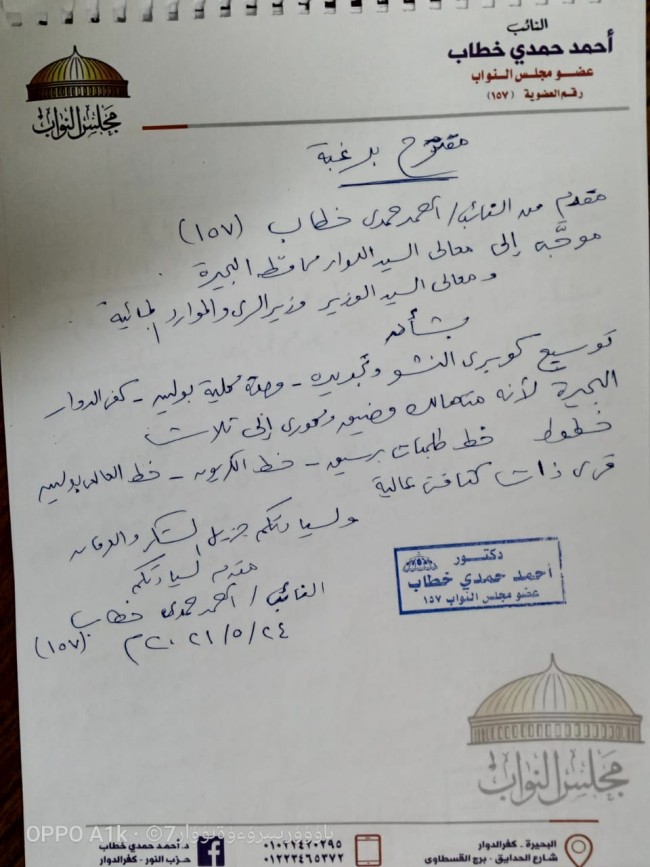 النائب
أحمد حمدي خطاب
عضو مجلس النواب
رقم العضوية (١٥٧)
مجلس النواب
مقترح برغبة
مقدم من النائب/ أحمد حمدى خطاب (١٥٧)
موجَّه إلى معالى السيد اللواء محافظ البحيرة
ومعالى السيد الوزير وزير الرى والموارد المائية
بشأن
توسيع كوبرى النشو وتجديده - وحدة محلية بولين - كفر الدوار
البحيرة لأنه متهالك وضيق ومحورى إلى ثلاث
خطوط خط طلمبات برسيق - خط الكريون - خط العالى بولين
قرى ذات كثافة عالية
ولسيادتكم جزيل الشكر والعرفان
مقدم لسيادتكم
النائب/ أحمد حمدى خطاب
(١٥٧) ٢٠٢١/٥/٢٤م
دكتور
أحمد حمدي خطاب
عضو مجلس النواب ١٥٧
مجلس النواب
البحيرة - كفر الدوار
شارع الحدايق - برج القسطاوى
٠١٠٢١٤٢٠٢٩٥
٠١٢٢٣٤٦٥٣٧٢
د. أحمد حمدي خطاب
حزب النور - كفر الدوار
OPPO A1k · ©